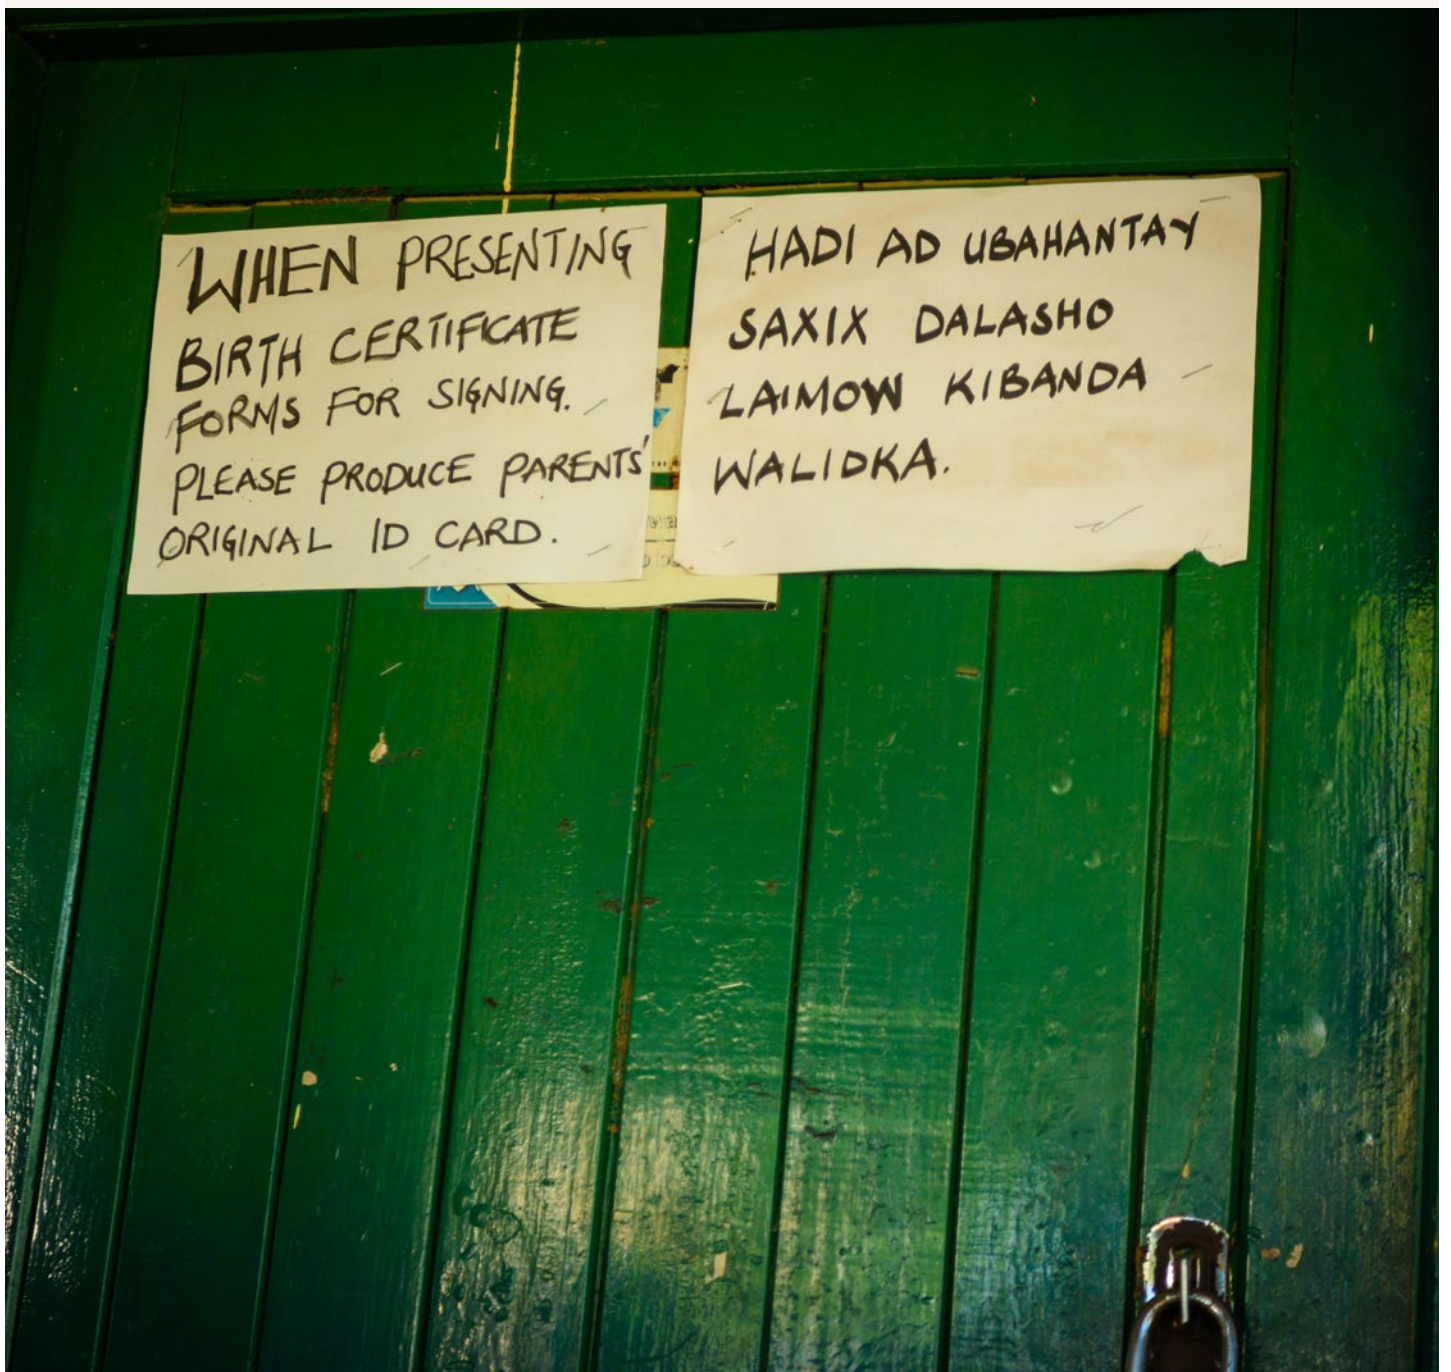 WHEN PRESENTING
BIRTH CERTIFICATE
FORMS FOR SIGNING.
PLEASE PRODUCE PARENTS'
ORIGINAL ID CARD.
HADI AD UBAHANTAY
SAXIX DALASHO
LAIMOW KIBANDA
WALIDKA.